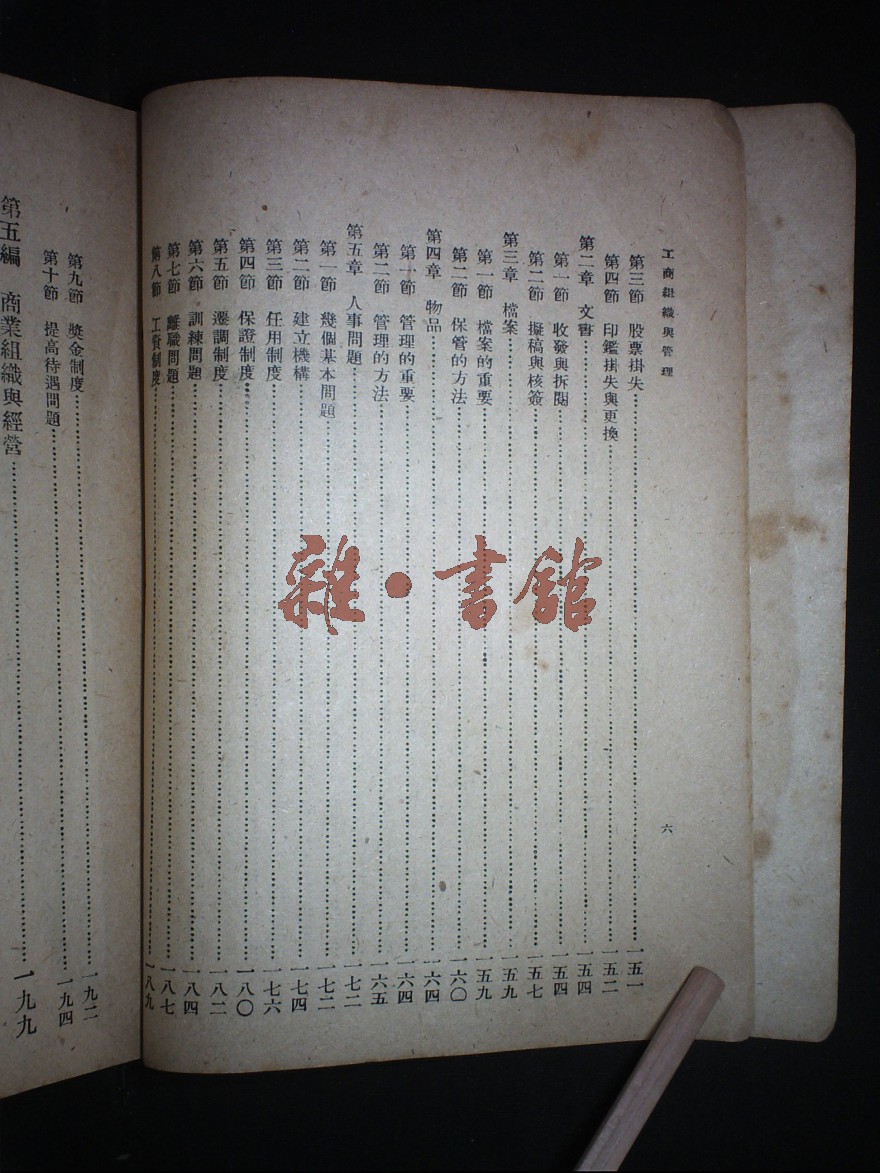 工商組織與管理
六
第三節 股票掛失……一五一
第四節 印鑑掛失與更換……一五二
第二章 文書……一五四
第一節 收發與拆閱……一五四
第二節 擬稿與核簽……一五七
第三章 檔案……一五九
第一節 檔案的重要……一五九
第二節 保管的方法……一六〇
第四章 物品……一六四
第一節 管理的重要……一六四
第二節 管理的方法……一六五
第五章 人事問題……一七二
第一節 幾個基本問題……一七二
第二節 建立機構……一七四
第三節 任用制度……一七六
第四節 保證制度……一八〇
第五節 遷調制度……一八二
第六節 訓練問題……一八四
第七節 離職問題……一八七
第八節 工資制度……一八九
第九節 獎金制度……一九二
第十節 提高待遇問題……一九四
第五編 商業組織與經營……一九九
雜·書館